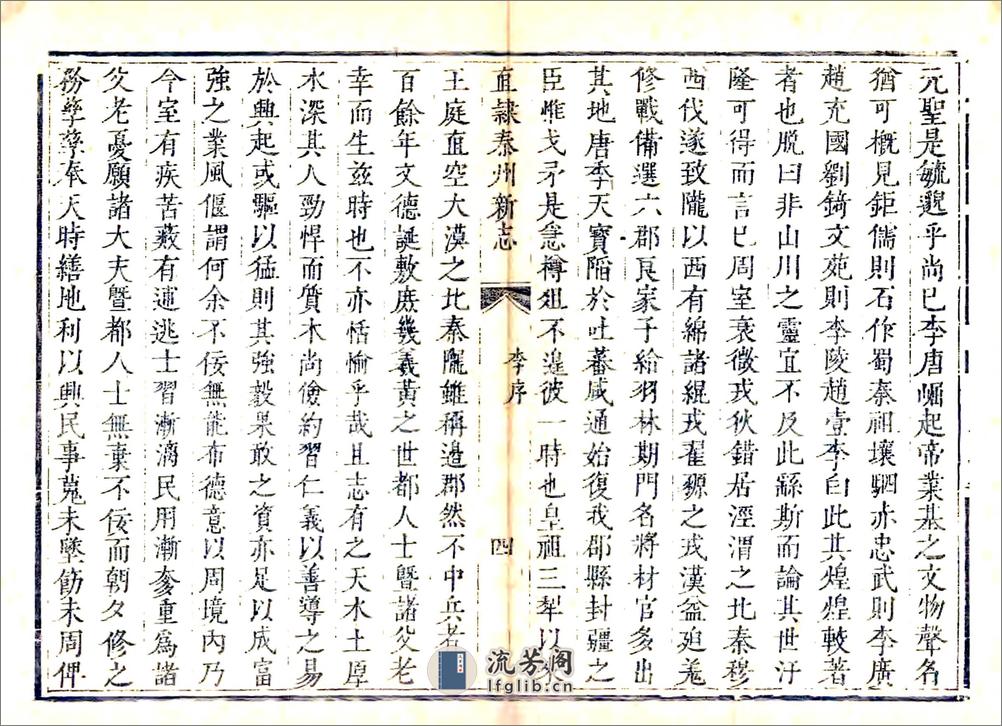 元聖是毓邈乎尚已李唐崛起帝業基之文物聲名
猶可概見鉅儒則石作蜀秦祖壤駟赤忠武則李廣
趙充國劉錡文苑則李陵趙壹李白此其煌煌較著
者也脱曰非山川之靈宜不及此繇斯而論其世汙
隆可得而言已周室衰微戎狄錯居涇渭之北秦穆
西伐遂致隴以西有綿諸緄戎翟豲之戎漢益廹羗
修戰備選六郡良家子給羽林期門名將材官多出
其地唐季天寶陷於吐蕃咸通始復我郡縣封疆之
臣惟戈矛是急樽俎不遑彼一時也皇祖三犁以來
直隷秦州新志
李序
四
王庭直空大漠之北秦隴雖稱邉郡然不中兵者
百餘年文德誕敷庶幾義黃之世都人士暨諸父老
幸而生兹時也不亦恬愉乎哉且志有之天水土厚
水深其人勁悍而質木尚儉約習仁義以善導之易
於興起或驅以猛則其強毅果敢之資亦足以成富
強之業風偃謂何余不佞無能布德意以周境内乃
今室有疾苦藪有逋逃士習漸漓民用漸奓重爲諸
父老憂願諸大夫暨都人士無棄不佞而朝夕修之
務孳孳奉天時繕地利以興民事蒐未墜飭未周俾
流芳阁
lfglib.cn